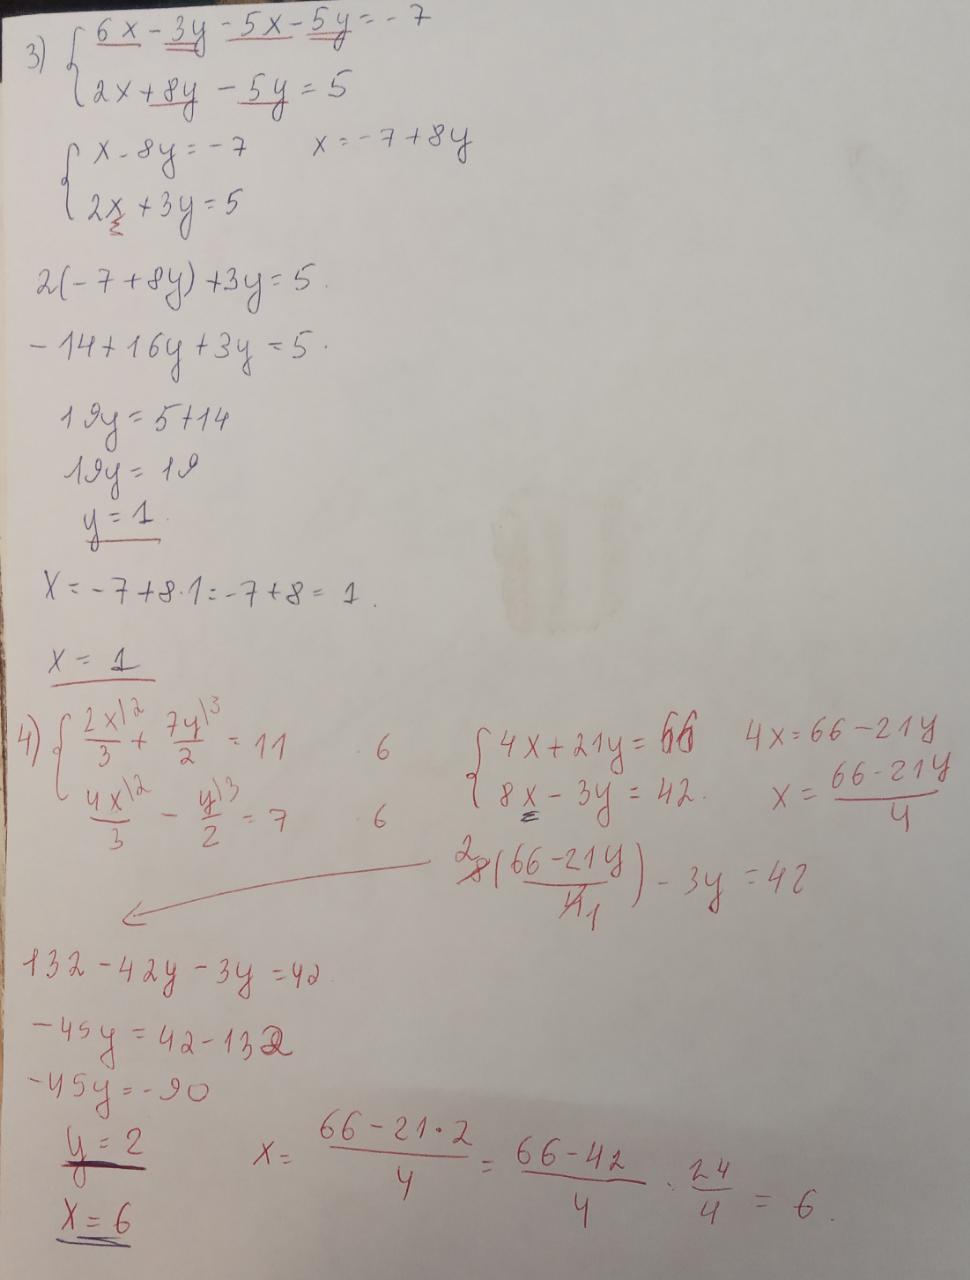 3) { 6x - 3y - 5x - 5y = -7
2x + 8y - 5y = 5
{ x - 8y = -7 x = -7 + 8y
2x + 3y = 5
2(-7 + 8y) + 3y = 5.
-14 + 16y + 3y = 5.
19y = 5 + 14
19y = 19
y = 1.
x = -7 + 8·1 = -7 + 8 = 1.
x = 1
4) { 2x|2/3 + 7y|3/2 = 11 ·6
4x|2/3 - y|3/2 = 7 ·6
{ 4x + 21y = 66 4x = 66 - 21y
8x - 3y = 42. x = 66 - 21y/4
2 8(66 - 21y/4 1) - 3y = 42
132 - 42y - 3y = 42
-45y = 42 - 132
-45y = -90
y = 2 x = 66 - 21·2/4 = 66 - 42/4 · 24/4 = 6.
x = 6